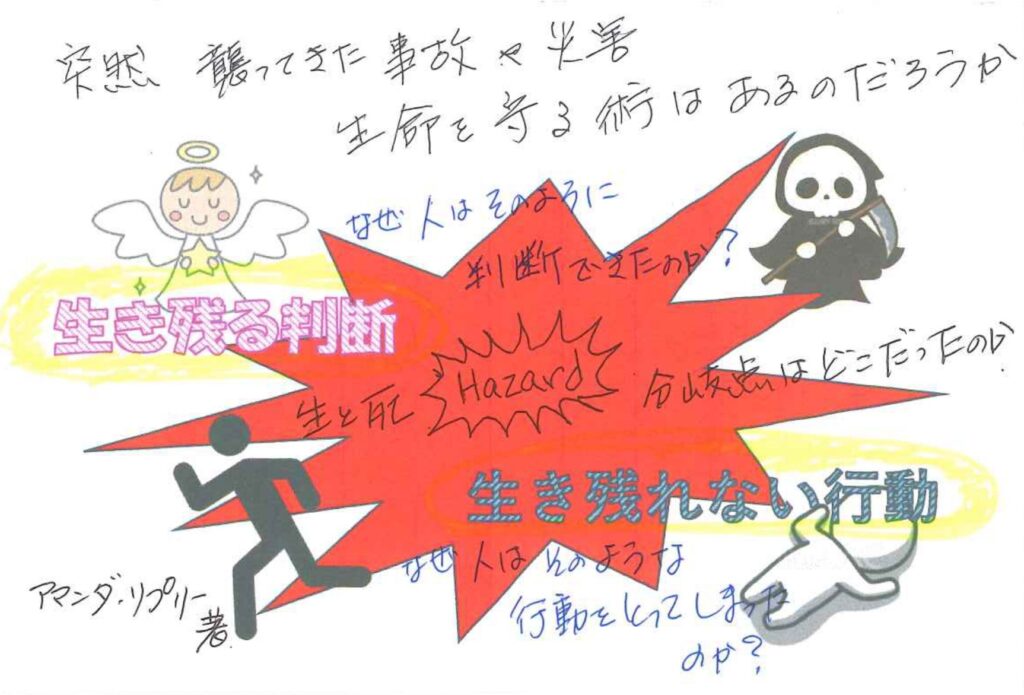 突然 襲ってきた事故や災害
生命を守る術はあるのだろうか
なぜ人はそのように
判断できたのか?
生き残る判断
生と死
Hazard
分岐点はどこだったのか
生き残れない行動
なぜ人はそのような
行動をとってしまった
のか?
アマンダ・リプリー
著